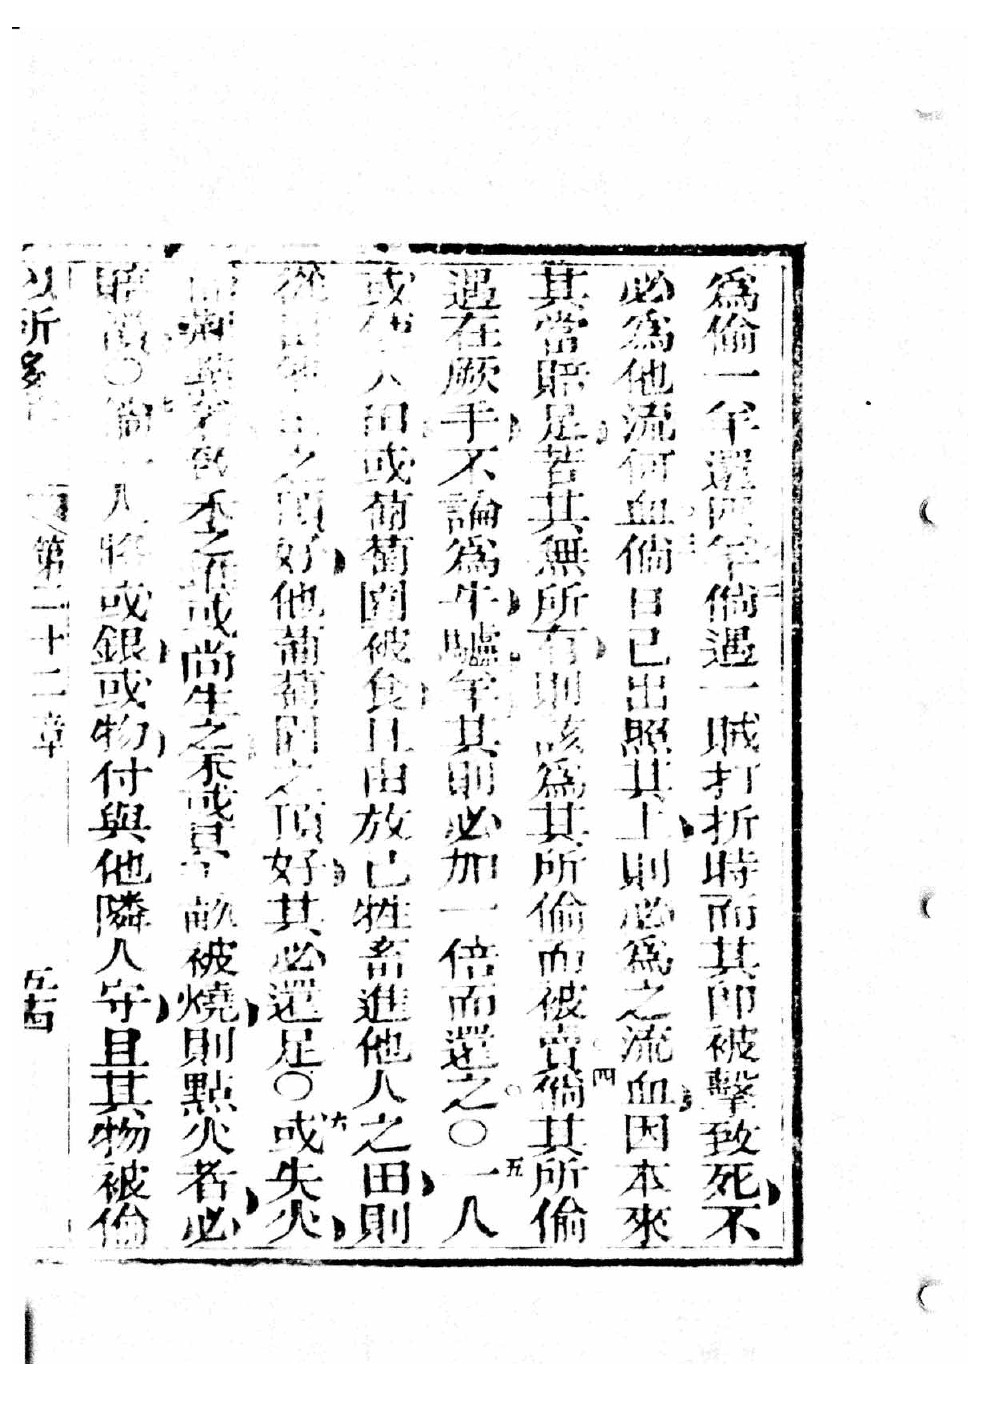 為偷一羊還四羊倘遇一賊打折時而其即被擊致死不
必為他流何血倘日已出照其上則必為之流血因本來
其當賠足若其無所有則該為其所偷而被賣四倘其所偷
遇在厥手不論為牛驢羊其則必加一倍而還之〇五一人
或使人田或葡萄園被食且由放已牲畜進他人之田則
從之頂好他葡萄園之頂好其必還足〇六或失火
禾之堆或尚生之禾或被燒則點火者必
〇倘人將或銀或物付與他隣人守且其物被偷
以所
第二十二章
五十四